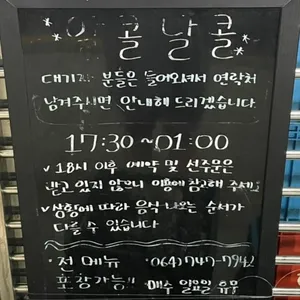 * 콜 날 콜 *
대기자 분들은 들어오셔서 연락처
남겨주시면 안내해 드리겠습니다.
17:30~01:00
✓ 18시 이후 예약 및 선주문은
받고 있지 않으니 이용에 참고해 주세요
✓ 상황에 따라 음식 나오는 순서가
다를 수 있습니다
· 전 메뉴
포장가능!!
·064) 747-7942
매주 일요일 휴무